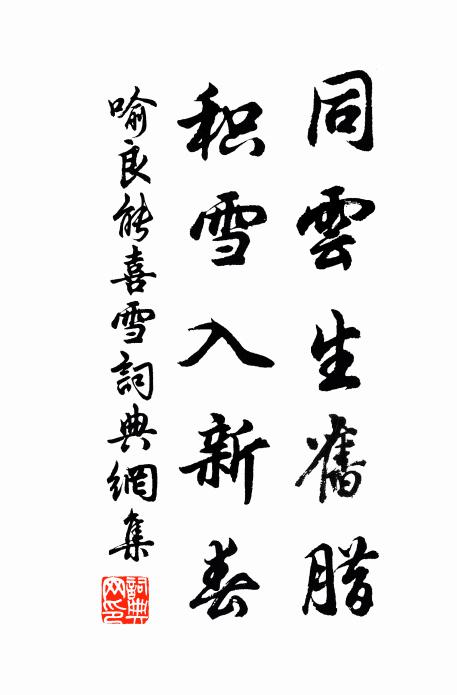 同雲生舊腊
积雪入新春
喻良能喜雪詞典網集
詞典网印